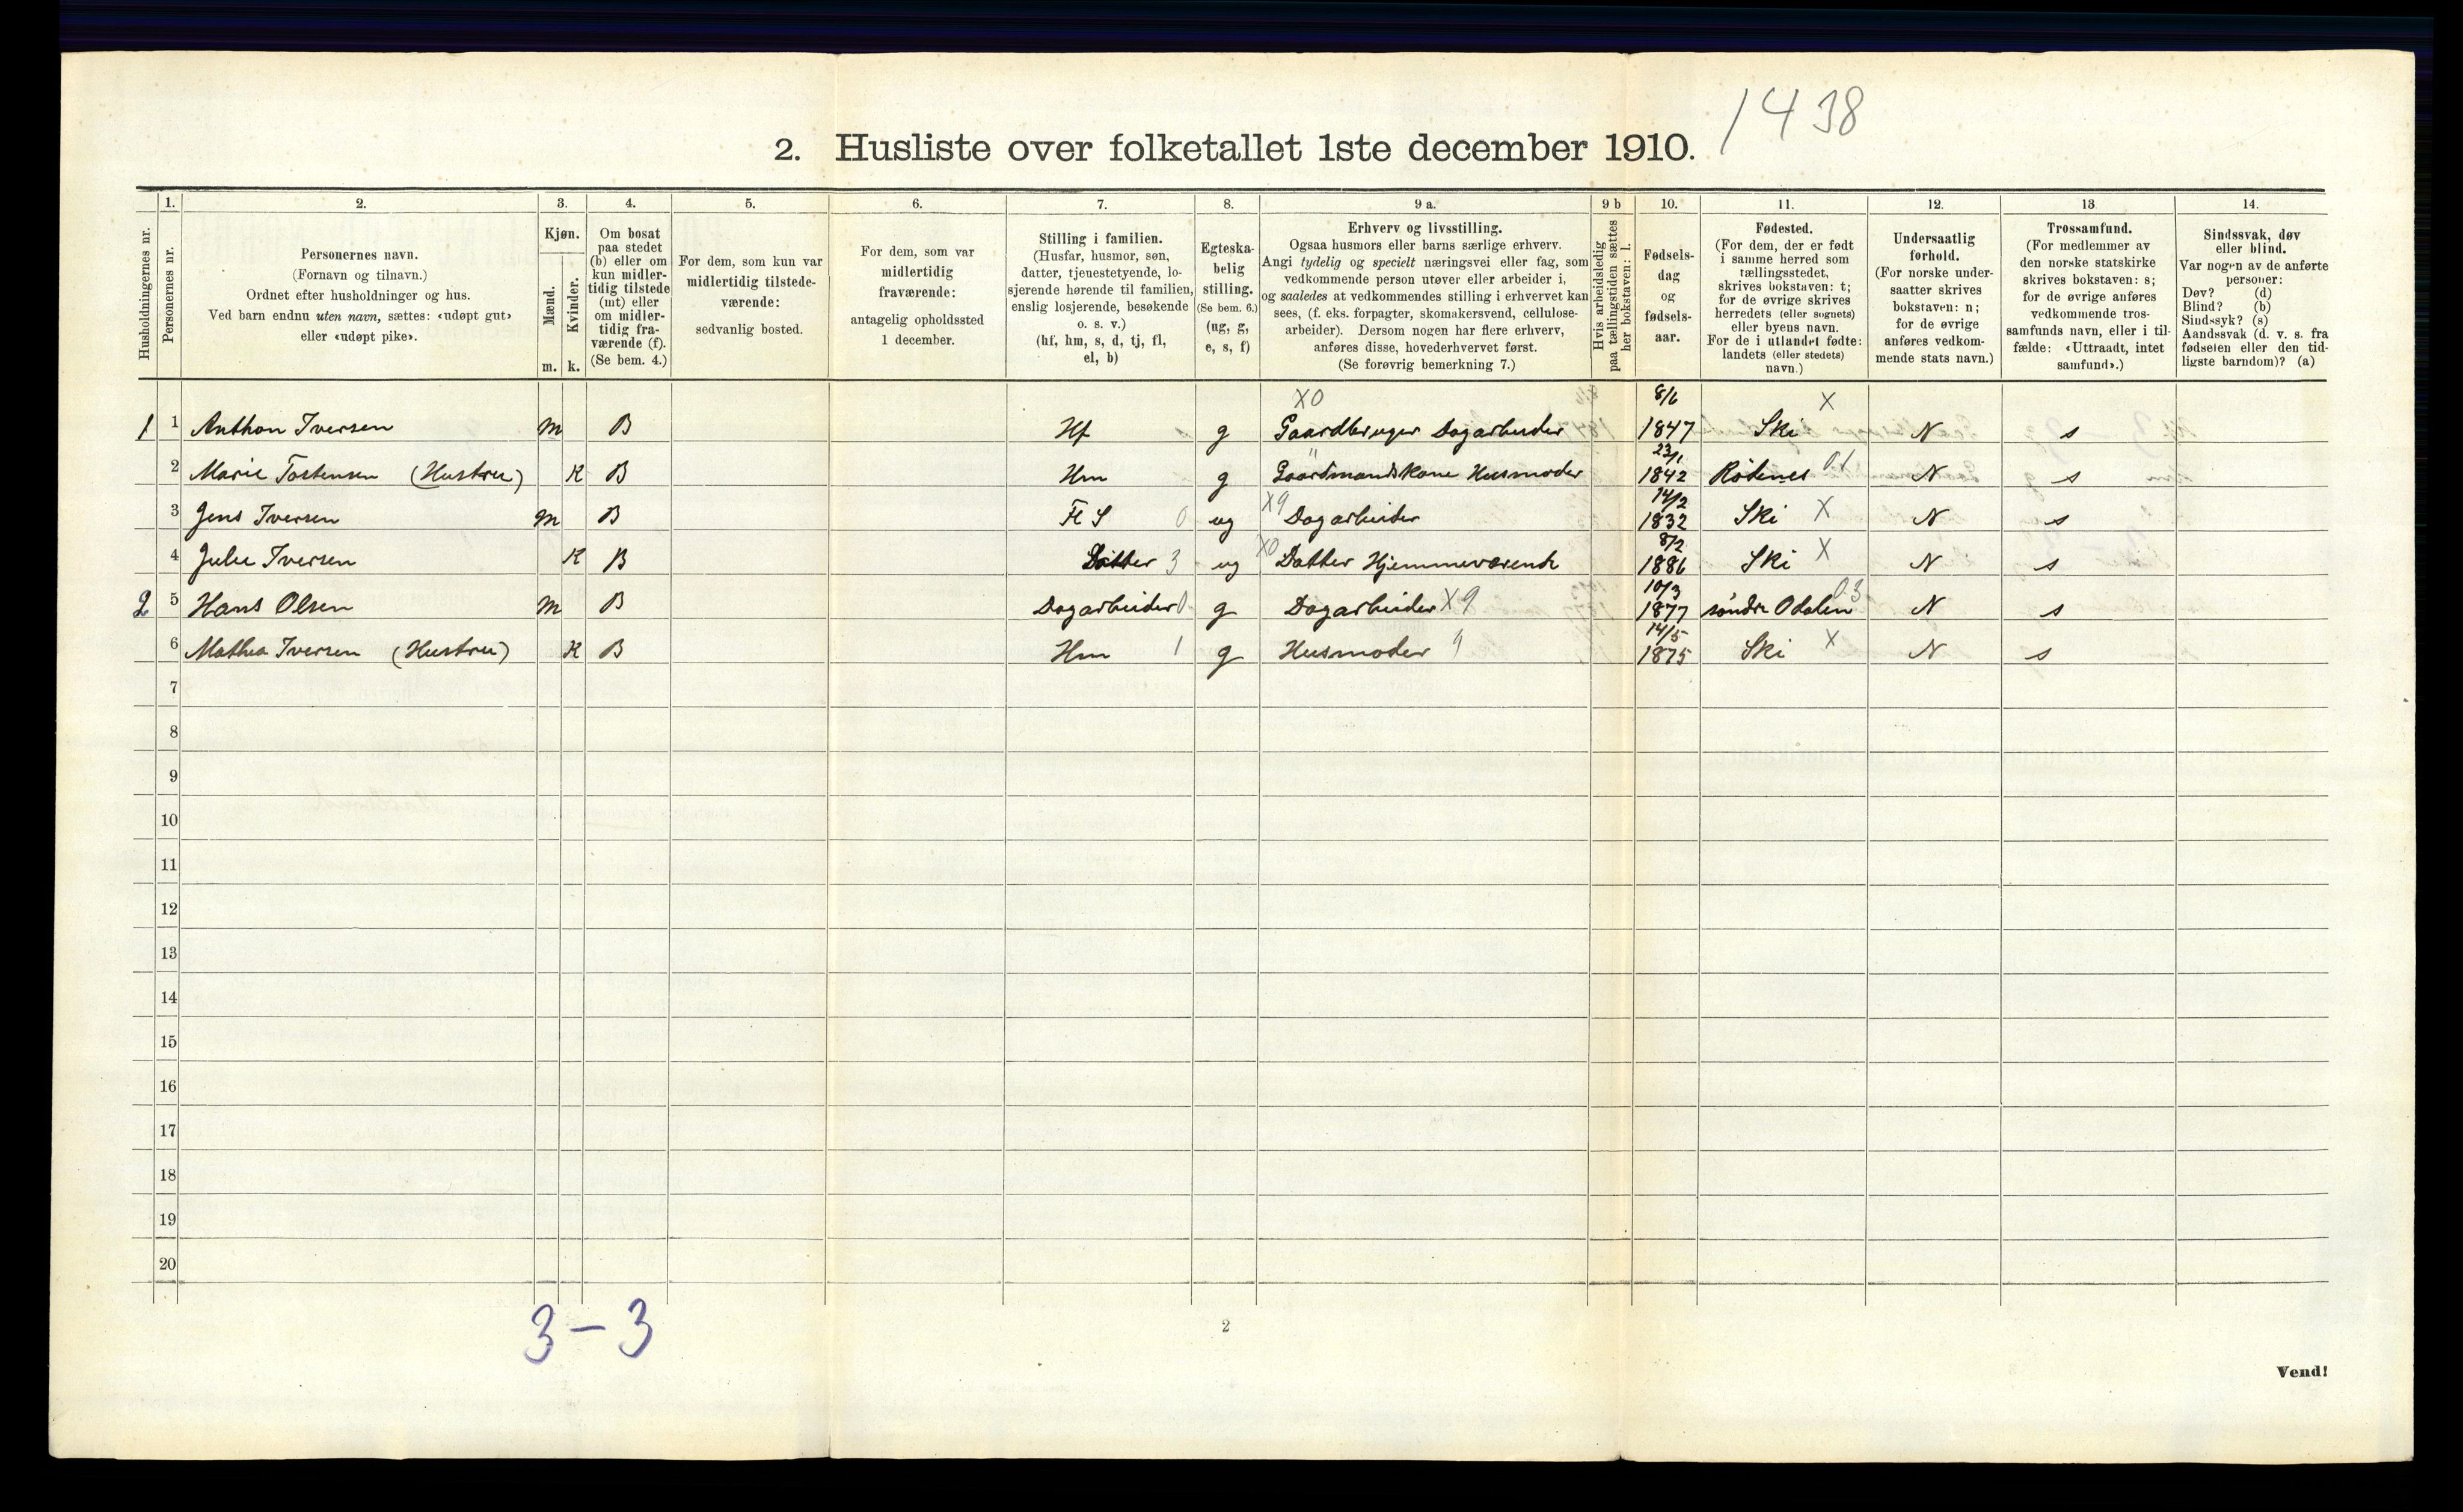 1438
2. Husliste over folketallet 1ste december 1910.
Husholdningernes nr.
1.
Personernes nr.
2.
Personernes navn.
(Fornavn og tilnavn.)
Ordnet efter husholdninger og hus.
Ved barn endnu uten navn, sættes: «udøpt gut»
eller «udøpt pike».
3.
Kjøn.
Mænd.
Kvinder.
m. k.
4.
Om bosat
paa stedet
(b) eller om
kun midler-
tidig tilstede
(mt) eller
om midler-
tidig fra-
værende (f).
(Se bem. 4.)
5.
For dem, som kun var
midlertidig tilstede-
værende:
sedvanlig bosted.
6.
For dem, som var
midlertidig
fraværende:
antagelig opholdssted
1 december.
7.
Stilling i familien.
(Husfar, husmor, søn,
datter, tjenestetyende, lo-
sjerende hørende til familien,
enslig losjerende, besøkende
o. s. v.)
(hf, hm, s, d, tj, fl,
el, b)
8.
Egteska-
belig
stilling.
(Se bem. 6.)
(ug, g,
e, s, f)
9 a.
Erhverv og livsstilling.
Ogsaa husmors eller barns særlige erhverv.
Angi tydelig og specielt næringsvei eller fag, som
vedkommende person utøver eller arbeider i,
og saaledes at vedkommendes stilling i erhvervet kan
sees, (f. eks. forpagter, skomakersvend, cellulose-
arbeider). Dersom nogen har flere erhverv,
anføres disse, hovederhvervet først.
(Se forøvrig bemerkning 7.)
9 b
Hvis arbeidsledig
paa tællingstiden sættes
her bokstaven: l.
10.
Fødsels-
dag
og
fødsels-
aar.
11.
Fødested.
(For dem, der er født
i samme herred som
tællingsstedet,
skrives bokstaven: t;
for de øvrige skrives
herredets (eller sognets)
eller byens navn.
For de i utlandet fødte:
landets (eller stedets)
navn.)
12.
Undersaatlig
forhold.
(For norske under-
saatter skrives
bokstaven: n;
for de øvrige
anføres vedkom-
mende stats navn.)
13
Trossamfund.
(For medlemmer av
den norske statskirke
skrives bokstaven: s;
for de øvrige anføres
vedkommende tros-
samfunds navn, eller i til-
fælde: «Uttraadt, intet
samfund».)
14.
Sindssvak, døv
eller blind.
Var nogen av de anførte
personer:
Døv? (d)
Blind? (b)
Sindssyk? (s)
Aandssvak (d. v. s. fra
fødselen eller den tid-
ligste barndom)? (a)
X0 8/6 X
1 1 Anthon Iversen m B Hf g Gaardbruger Dagarbeider 1847 Ski N s
23/1
2 Marie Tostensen (Hustru) K B Hm g Gaardmandskone Husmoder 1842 Rödenes 01 N s
14/2
3 Jens Iversen m B Fl S 0 ug X9 Dagarbeider 1832 Ski X N s
8/2
4 Julie Iversen K B Datter 3 ug X0 Datter Hjemmeværende 1886 Ski X N s
10/3
2 5 Hans Olsen m B Dagarbeider 0 g Dagarbeider X9 1877 söndre Odalen 03 N s
14/5
6 Mathea Iversen (Hustru) K B Hm 1 g Husmoder 9 1875 Ski X N s
7
8
9
10
11
12
13
14
15
16
17
18
19
20
3 – 3
2
Vend!